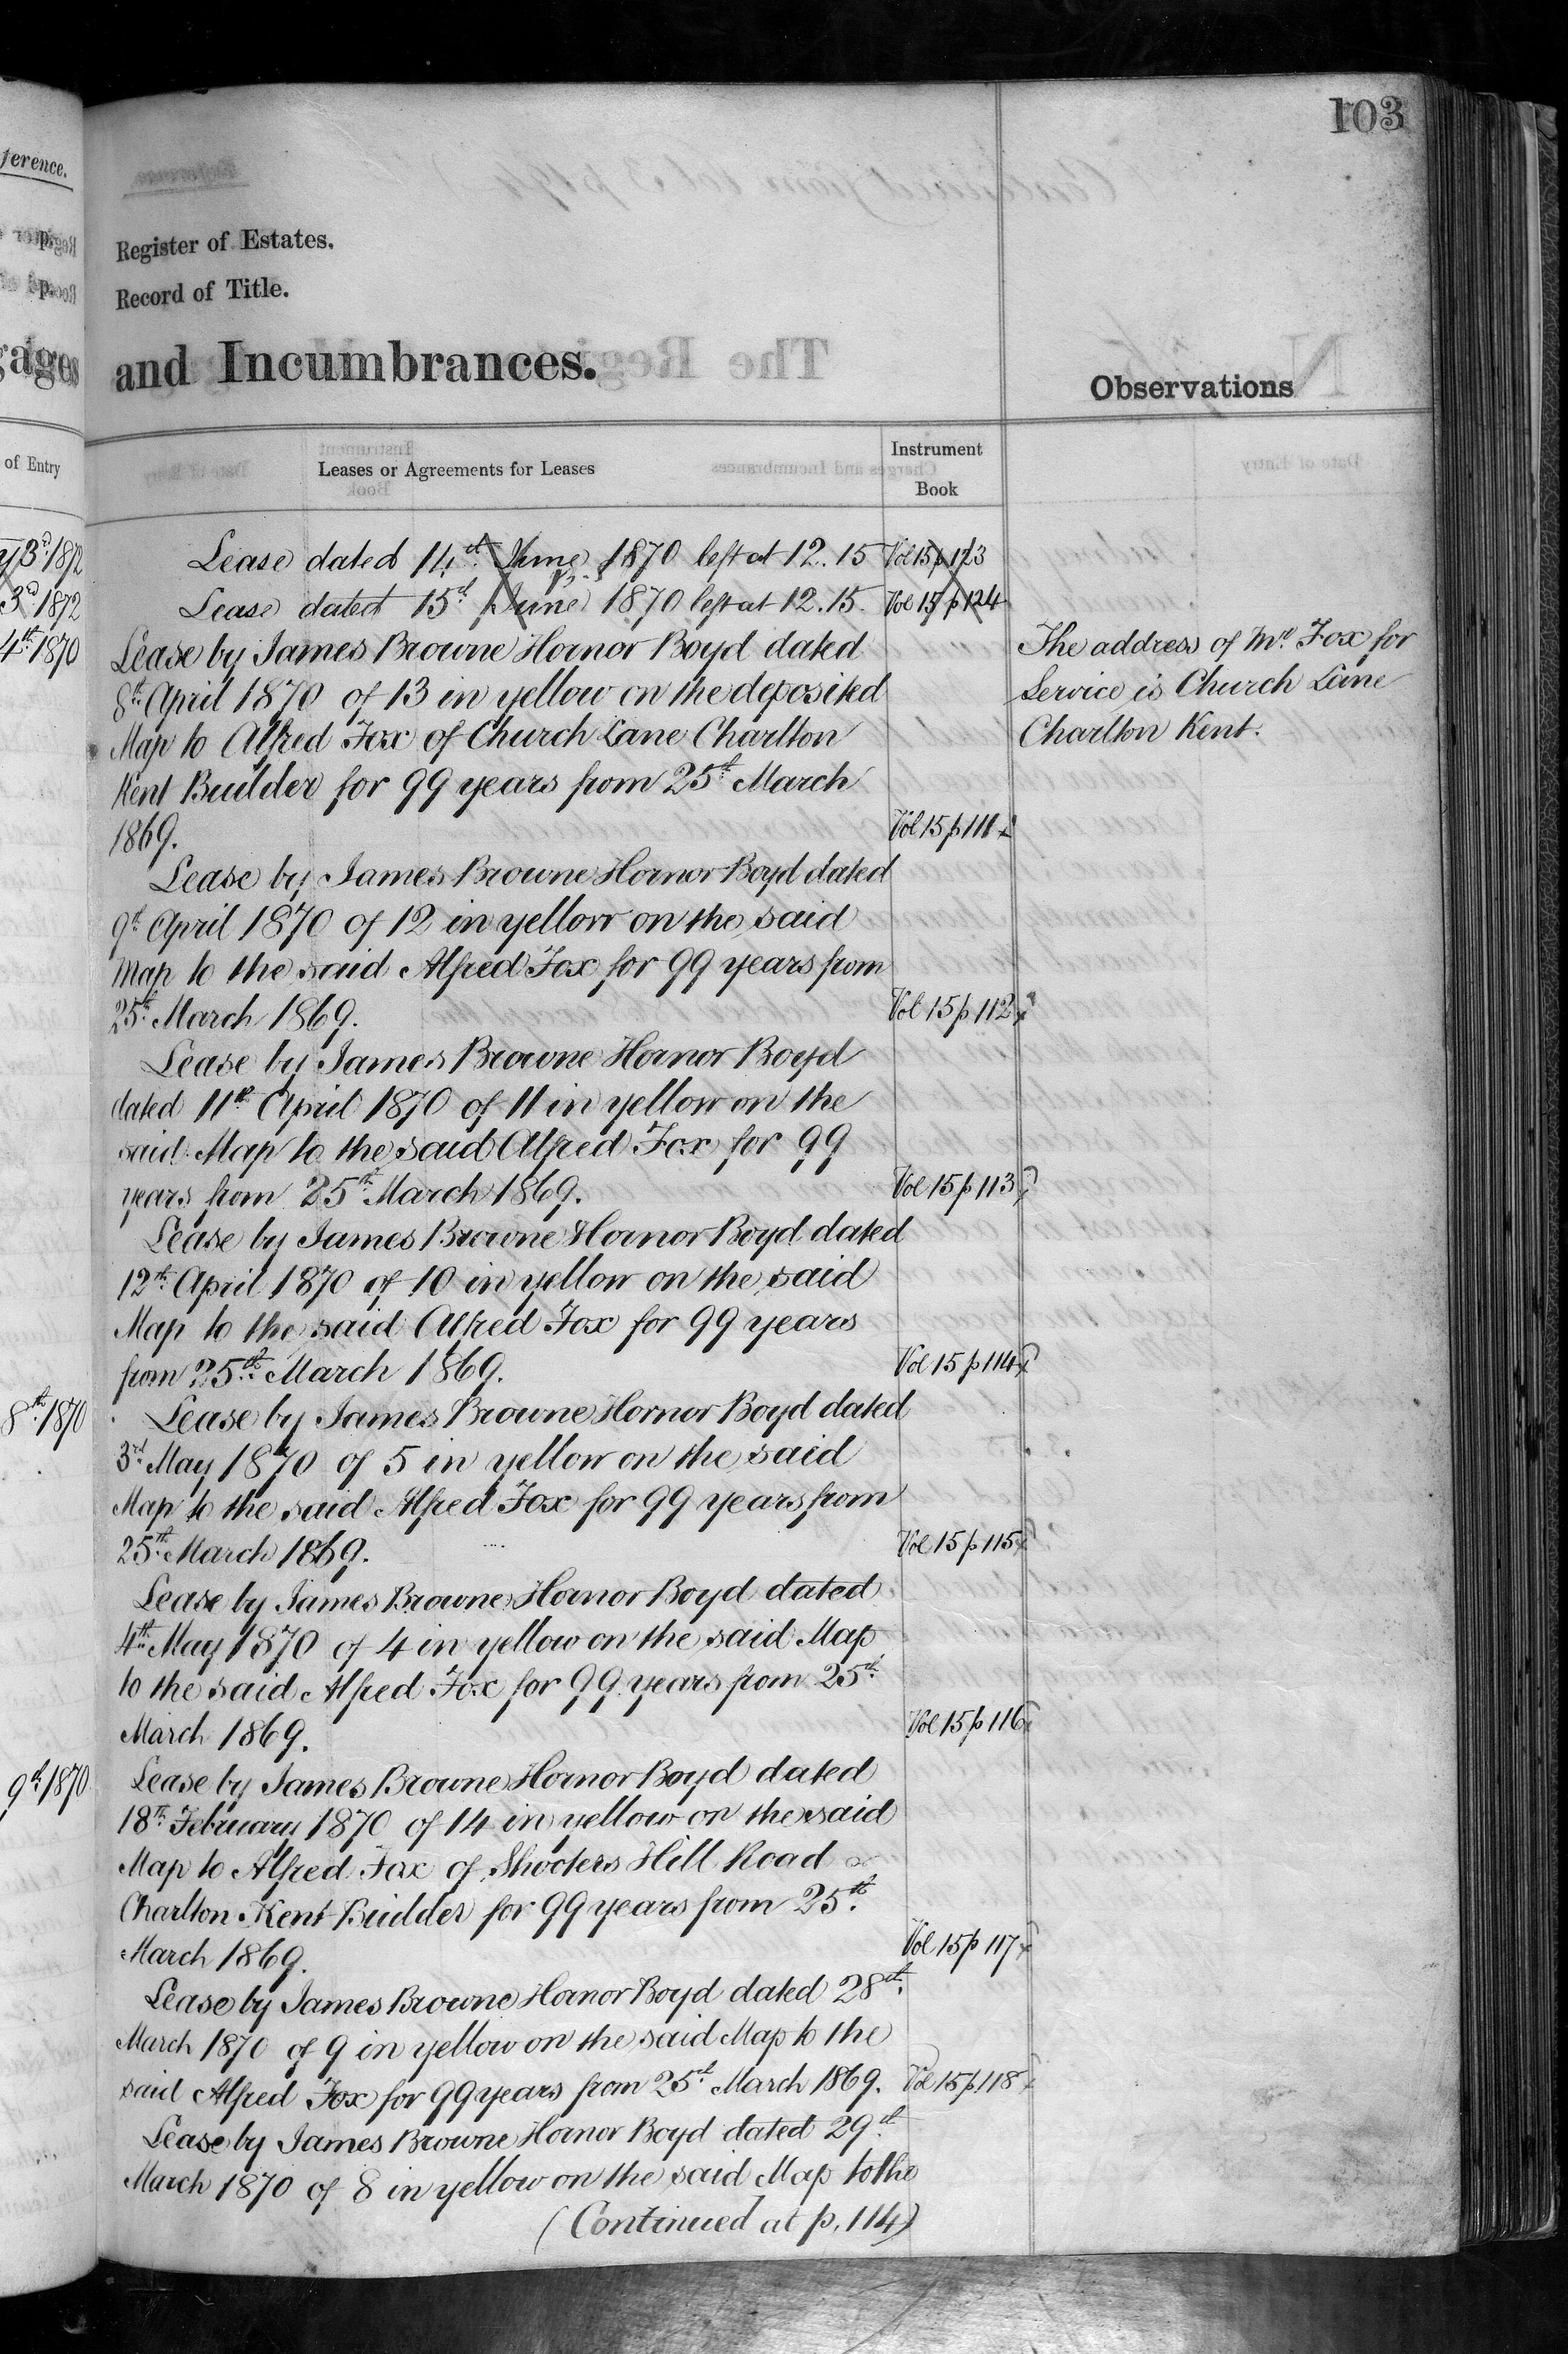 103
ference.
Register of Estates.
Record of Title.
gages
and Incumbrances.
Observations
of Entry
Leases or Agreements for Leases
Instrument
Book
3rd 1872
Lease dated 14th June 1870 left at 12.15 Vol 15 p 123
3rd 1872
Lease dated 15th June 1870 left at 12.15. Vol 15 p 124
4th 1870
Lease by James Browne Hornor Boyd dated
8th April 1870 of 13 in yellow on the deposited
Map to Alfred Fox of Church Lane Charlton
Kent Builder for 99 years from 25th March
1869. Vol 15 p 111
The address of Mr. Fox for
Service is Church Lane
Charlton Kent.
Lease by James Browne Hornor Boyd dated
9th April 1870 of 12 in yellow on the said
Map to the said Alfred Fox for 99 years from
25th March 1869. Vol 15 p 112
Lease by James Browne Hornor Boyd
dated 11th April 1870 of 11 in yellow on the
said Map to the said Alfred Fox for 99
years from 25th March 1869. Vol 15 p 113
Lease by James Browne Hornor Boyd dated
12th April 1870 of 10 in yellow on the said
Map to the said Alfred Fox for 99 years
from 25th March 1869. Vol 15 p 114
8th 1870
Lease by James Browne Hornor Boyd dated
3rd May 1870 of 5 in yellow on the said
Map to the said Alfred Fox for 99 years from
25th March 1869. Vol 15 p 115
Lease by James Browne Hornor Boyd dated
4th May 1870 of 4 in yellow on the said Map
to the said Alfred Fox for 99 years from 25th
March 1869. Vol 15 p 116
9th 1870
Lease by James Browne Hornor Boyd dated
18th February 1870 of 14 in yellow on the said
Map to Alfred Fox of Shooters Hill Road
Charlton Kent Builder for 99 years from 25th
March 1869. Vol 15 p 117
Lease by James Browne Hornor Boyd dated 28th
March 1870 of 9 in yellow on the said Map to the
said Alfred Fox for 99 years from 25th March 1869. Vol 15 p 118
Lease by James Browne Hornor Boyd dated 29th
March 1870 of 8 in yellow on the said Map to the
(Continued at p. 114)